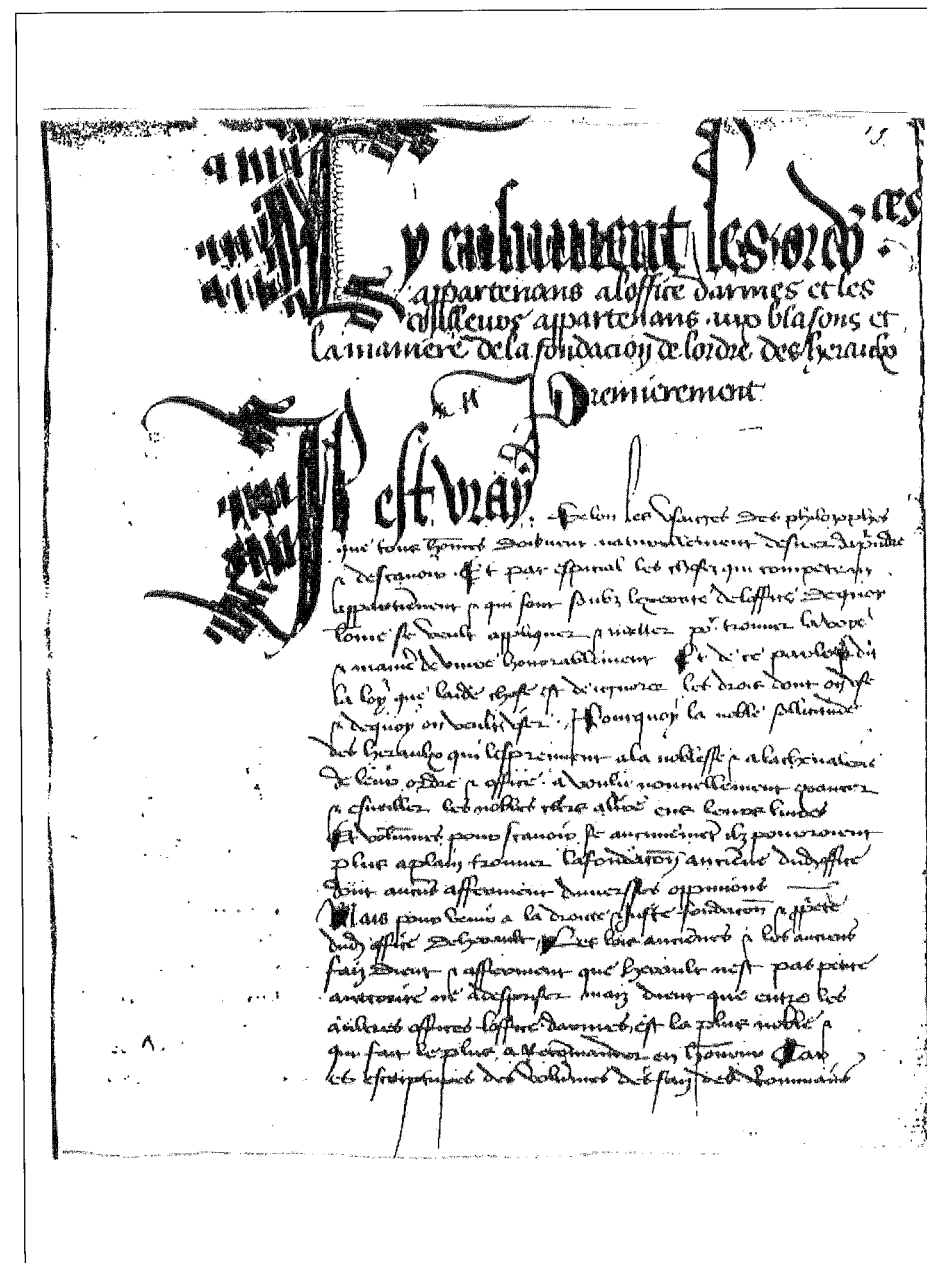 19.
Cy ensuiuent les ordōces
appartenans a loffice darmes et les
coulleurs appartenans aux blasons et
la maniere de la fondacion de lordre des heraulx
Premierement
Il est vray Selon les des philozophes
que tous hōmes doibuent naturellement desirer daprēdre
& de scauoir Et par especial les choses qui competent
appartiennent & qui sont soubz de loffice de quoy
lōme se veult appliquer & mesler po. trouuer la voye
& maniē de viure honorablement Et de ce parle dit
la loy que laide chose est de ignorer les drois dont on vse
& de quoy on veult vser Pourquoy la noble sollicitude
des heraulx qui a la noblesse & a la cheualerie
de leur ordre & office a voulu nouuellement
& esueiller les nobles clers leurs liures
Et volūmes pour scauoir se anciennemēt ilz pouroient
plus a plain trouuer la fondacōn anciēne dud office
dont aucūs afferment diuerses oppinions
Mais pour venir a la droite & iuste fondacōn &
dud office de herault Les lois anciēnes & les anciens
faiz dient & afferment que herault nest pas petite
auctorite ne a despriser maiz dient que entre les
aultres offices loffice darmes est la plus noble &
qui fait le plus a recōmander en hōneur Car
es escriptures des volumes des faiz des Rommains